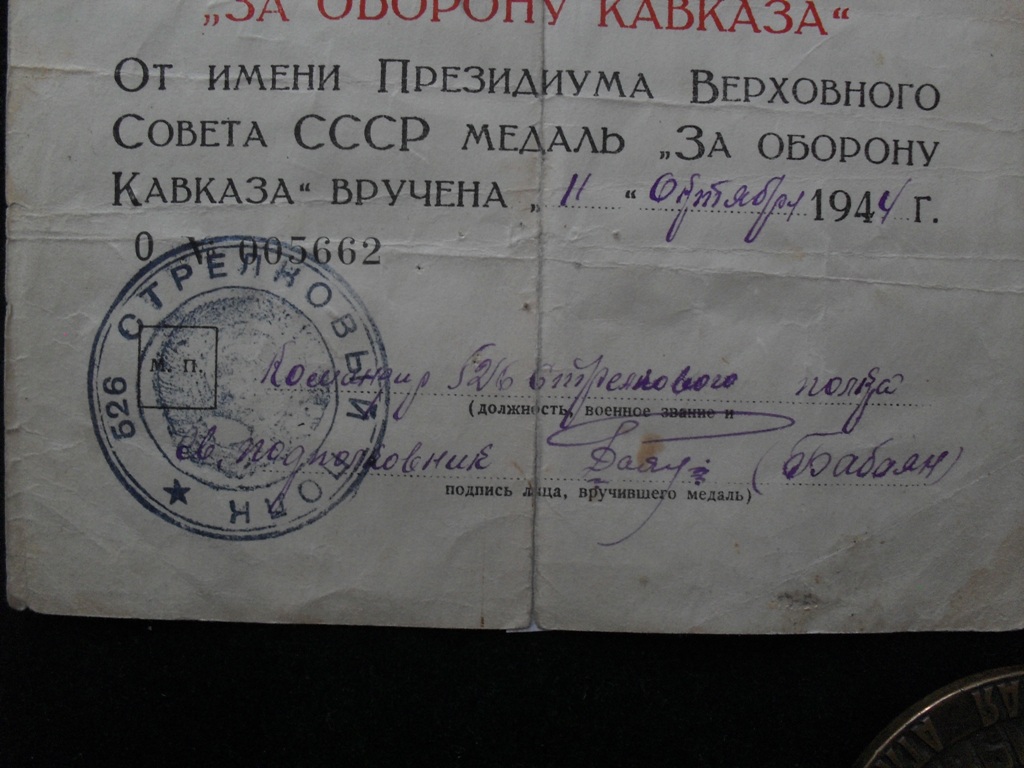 „ЗА ОБОРОНУ КАВКАЗА“
ОТ ИМЕНИ ПРЕЗИДИУМА ВЕРХОВНОГО
СОВЕТА СССР МЕДАЛЬ „ЗА ОБОРОНУ
КАВКАЗА“ ВРУЧЕНА „ 11 “ Октября 1944 г.
О № 005662
526 СТРЕЛКОВЫЙ ПОЛК
М. П.
Командир 526 стрелкового полка
(должность, военное звание и
подполковник (Бабаян)
подпись лица, вручившего медаль)